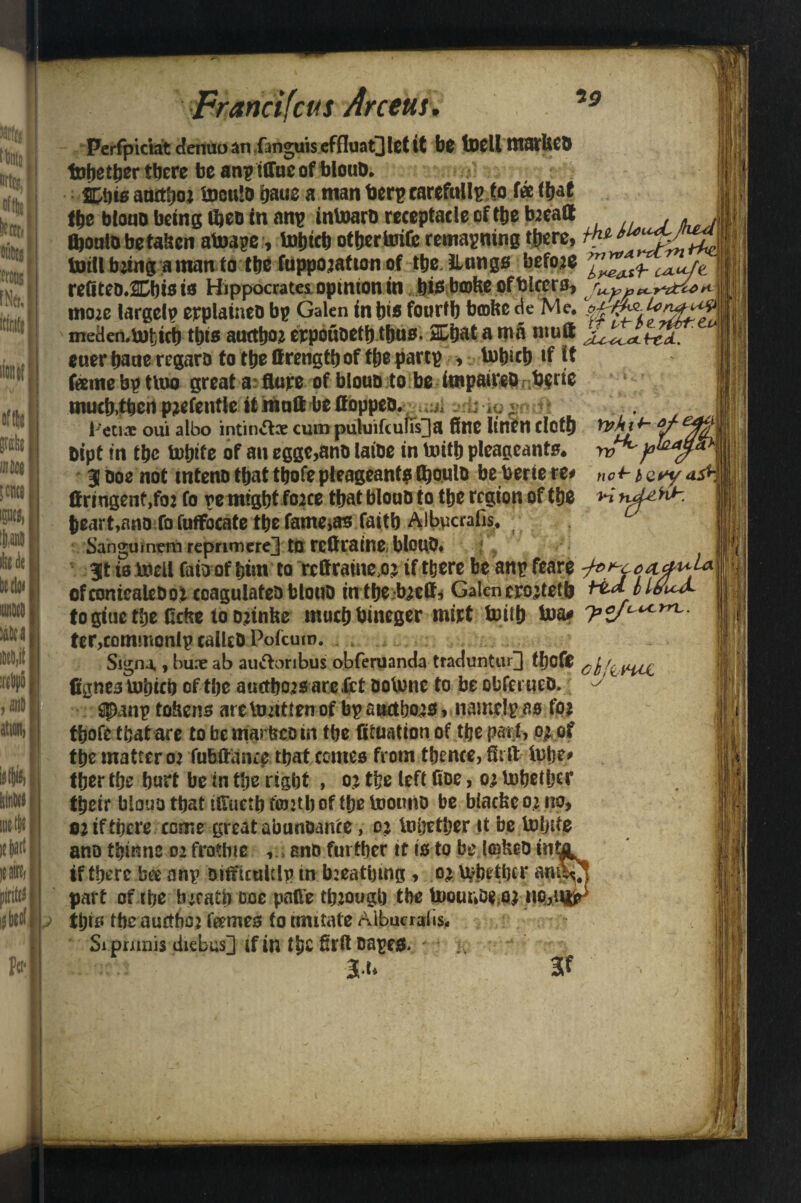 Franciscus Arceus.
29
Perspiciat denuo an sanguis effluat] let it be well marked
whether there be any issue of bloud.
This aucthor would haue a man very carefully to sée that
the bloud being shed in any inward receptacle of the breast
should be taken awaye, which otherwise remayning there,
will bring a man to the suppuration of the Lungs before
resited. This is Hippocrates opinion in his booke of vlcers,
more largely explained by Galen in his fourth booke de Me.
meden. which this aucthor expoūdeth thus. That a mā must
euer haue regard to the strength of the party, which if it
séeme by two great a flure of bloud to be impaired verie
much, then presentle it must be stopped.
Petiæ oui albo intinctæ cum puluisculis] a fine linen cloth
dipt in the white of an egge, and laide in with pleageants.
I doe not intend that those pleageants should be verie re-
stringent, for so ye might force that bloud to the region of the
heart, and so suffocate the same, as saith Albucrasis.
Sanguinem reprimere] to restraine bloud.
It is well said of him to restraine, or if there be any feare
of conicealed or coagulated bloud in the brest, Galen exorteth
to giue the sicke to drinke much vineger mixt with wa-
ter, commonly called Poscum.
Signa, huæ ab auctoribus obseruanda traduntur] those
signes which of the aucthors are set downe to be obserued.
Many tokens are written of by aucthors, namely as for
those that are to be marked in the situation of the part, or of
the matter or substance that comes from thence, first whe-
ther the hurt be in the right, or the left side, or whether
their bloud that issueth foorth of the wound be blacke or no,
or if there come great abundance, or whether it be white
and thinne or frothie, and further it is to be looked into,
if there bée any difficultly in breathing, or whether any
part of the breath doe passe through the wounde, or no,
this the aucthor séemes to imitate Albucrasis.
Si primis diebus] if in the first dayes.
I.i.
If
the bloud shed
in ward in the
breast cause
suppuration
of the Lungs
if it be not eva
cuated.
what of egg
wth pleagea
not bery ast
ringent.
for coagula
ted bloud
poscum.
obserue